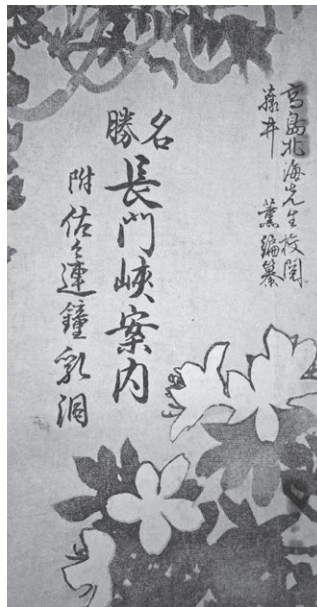 高島北海先生校閲
藤井 薫編纂
名勝
長門峡案内
附佐々連鐘乳洞